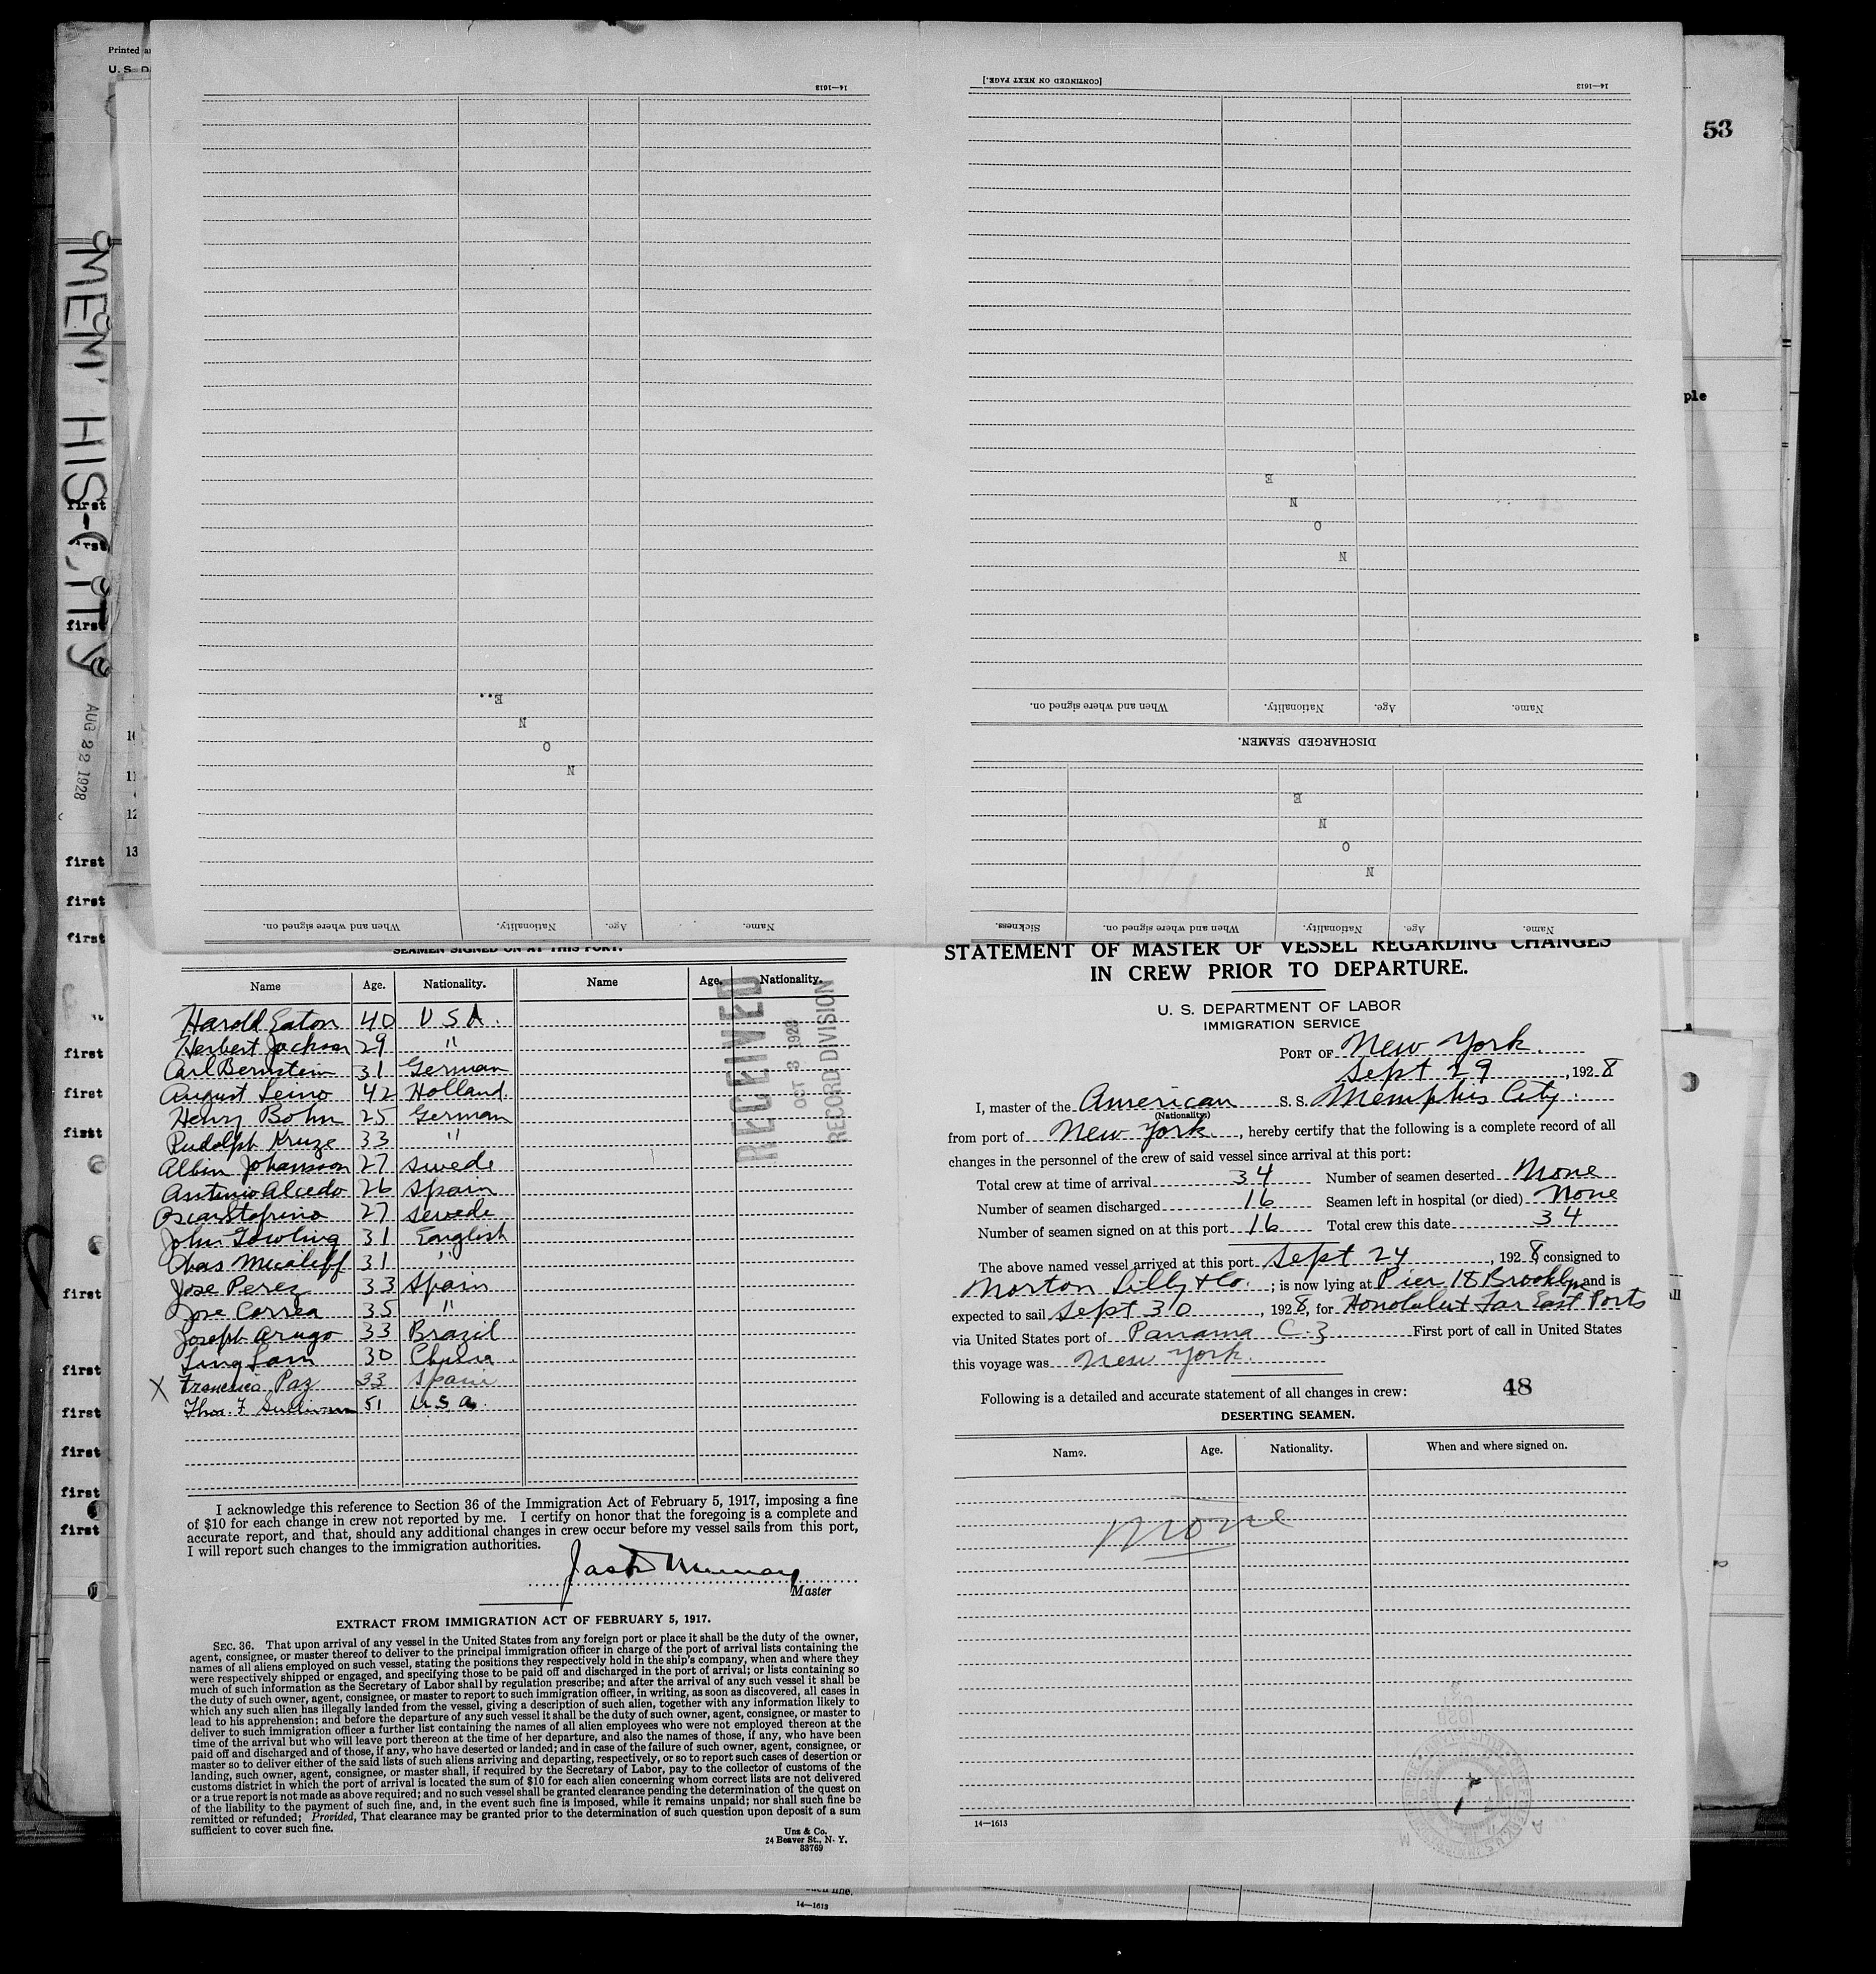 Printed
U. S.
53
[CONTINUED ON NEXT PAGE.]
14—1613
14—1613
MEMPHIS-CITY
AUG 22 1928
ple
first
first
first
first
first
10
11
12
13
N
O
N
E
N
O
N
E
Name. Age. Nationality. When and where signed on.
DISCHARGED SEAMEN.
N
O
N
E
Name. Age. Nationality. When and where signed on.
Name. Age. Nationality. When and where signed on. Sickness.
SEAMEN SIGNED ON AT THIS PORT.
Name Age. Nationality. Name Age. Nationality.
Harold Eaton 40 U S A.
Herbert Jackson 29 "
Carl Bernstein 31 German
August Leino 42 Holland.
Henry Bohn 25 German
Rudolph Kruze 33 "
Albin Johansson 27 Swede
Antonio Alcedo 26 Spain
27 Swede
John Gowling 31 English
Chas 31 "
Jose Perez 33 Spain
Jose Correa 35 "
Joseph Arugo 33 Brazil
Ling Lam 30 China.
X Francisco Paz 33 Spain
Thos. F Sullivan 51 U.S.A.
RECEIVED
OCT 3 1928
RECORD DIVISION
I acknowledge this reference to Section 36 of the Immigration Act of February 5, 1917, imposing a fine
of $10 for each change in crew not reported by me. I certify on honor that the foregoing is a complete and
accurate report, and that, should any additional changes in crew occur before my vessel sails from this port,
I will report such changes to the immigration authorities.
Murray
Master
EXTRACT FROM IMMIGRATION ACT OF FEBRUARY 5, 1917.
SEC. 36. That upon arrival of any vessel in the United States from any foreign port or place it shall be the duty of the owner,
agent, consignee, or master thereof to deliver to the principal immigration officer in charge of the port of arrival lists containing the
names of all aliens employed on such vessel, stating the positions they respectively hold in the ship's company, when and where they
were respectively shipped or engaged, and specifying those to be paid off and discharged in the port of arrival; or lists containing so
much of such information as the Secretary of Labor shall by regulation prescribe; and after the arrival of any such vessel it shall be
the duty of such owner, agent, consignee, or master to report to such immigration officer, in writing, as soon as discovered, all cases in
which any such alien has illegally landed from the vessel, giving a description of such alien, together with any information likely to
lead to his apprehension; and before the departure of any such vessel it shall be the duty of such owner, agent, consignee, or master to
deliver to such immigration officer a further list containing the names of all alien employees who were not employed thereon at the
time of the arrival but who will leave port thereon at the time of her departure, and also the names of those, if any, who have been
paid off and discharged and of those, if any, who have deserted or landed; and in case of the failure of such owner, agent, consignee, or
master so to deliver either of the said lists of such aliens arriving and departing, respectively, or so to report such cases of desertion or
landing, such owner, agent, consignee, or master shall, if required by the Secretary of Labor, pay to the collector of customs of the
customs district in which the port of arrival is located the sum of $10 for each alien concerning whom correct lists are not delivered
or a true report is not made as above required; and no such vessel shall be granted clearance pending the determination of the quest on
of the liability to the payment of such fine, and, in the event such fine is imposed, while it remains unpaid; nor shall such fine be
remitted or refunded; Provided, That clearance may be granted prior to the determination of such question upon deposit of a sum
sufficient to cover such fine.
Unz & Co.
24 Beaver St., N. Y.
33769
such fine.
14—1613
STATEMENT OF MASTER OF VESSEL REGARDING CHANGES
IN CREW PRIOR TO DEPARTURE.
U. S. DEPARTMENT OF LABOR
IMMIGRATION SERVICE
PORT OF New York.
Sept 29, 1928
I, master of the American S. S. Memphis City.
(Nationality)
from port of New York, hereby certify that the following is a complete record of all
changes in the personnel of the crew of said vessel since arrival at this port:
Total crew at time of arrival 34 Number of seamen deserted None
Number of seamen discharged 16 Seamen left in hospital (or died) None
Number of seamen signed on at this port 16 Total crew this date 34
The above named vessel arrived at this port Sept 24, 1928, consigned to
Norton Lilly & Co.; is now lying at Pier 18 Brooklyn and is
expected to sail Sept 30, 1928, for Honolulu & Far East Ports
via United States port of Panama C.Z. First port of call in United States
this voyage was New York.
Following is a detailed and accurate statement of all changes in crew: 48
DESERTING SEAMEN.
Name. Age. Nationality. When and where signed on.
None
14—1613
first
first
first
first
first
first
first
first
first
first
first
first